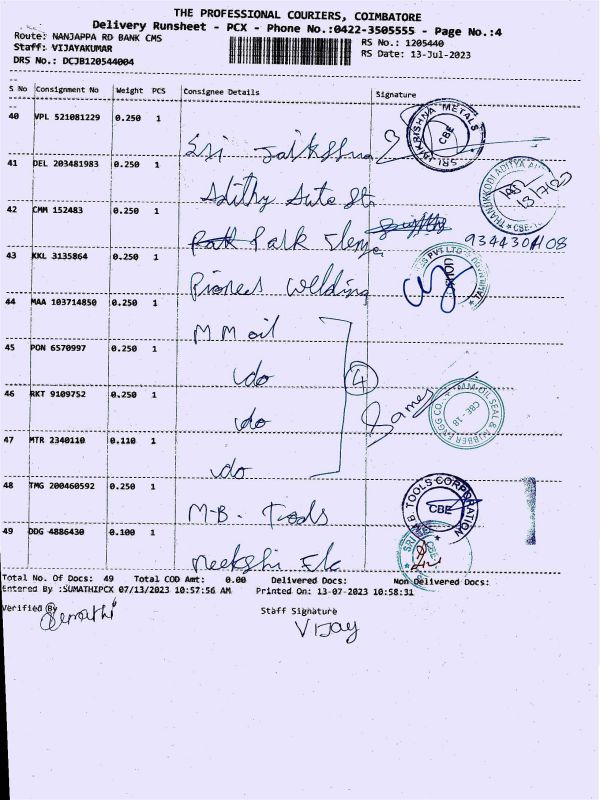 THE PROFESSIONAL COURIERS, COIMBATORE
Delivery Runsheet - PCX - Phone No.:0422-3505555 - Page No.:4
Route: NANJAPPA RD BANK CMS
RS No.: 1205440
Staff: VIJAYAKUMAR
RS Date: 13-Jul-2023
DRS No.: DCJB120544004
S No Consignment No Weight PCS Consignee Details Signature
40 VPL 521081229 0.250 1
SRI JAIKRISHNA METALS
CBE
Sri Jaikrishna
41 DEL 203481983 0.250 1
13/7/23
Adithy Auto St
42 CMM 152483 0.250 1
Park
9344304108
43 KKL 3135864 0.250 1
Pioneer Welding
44 MAA 103714850 0.250 1
M M oil
45 PON 6570997 0.250 1
do
4
46 RKT 9109752 0.250 1
do
M.M.OIL SEAL & RUBBER ENGG CO.
CBE -18
47 MTR 2340110 0.110 1
do
48 TMG 200460592 0.250 1
B TOOLS CORPORATION
CBE
M-B. Tools
49 DDG 4886430 0.100 1
Total No. Of Docs: 49 Total COD Amt: 0.00 Delivered Docs: Non Delivered Docs:
Entered By :SUMATHIPCX 07/13/2023 10:57:56 AM Printed On: 13-07-2023 10:58:31
Verified By
Staff Signature
VIJAY